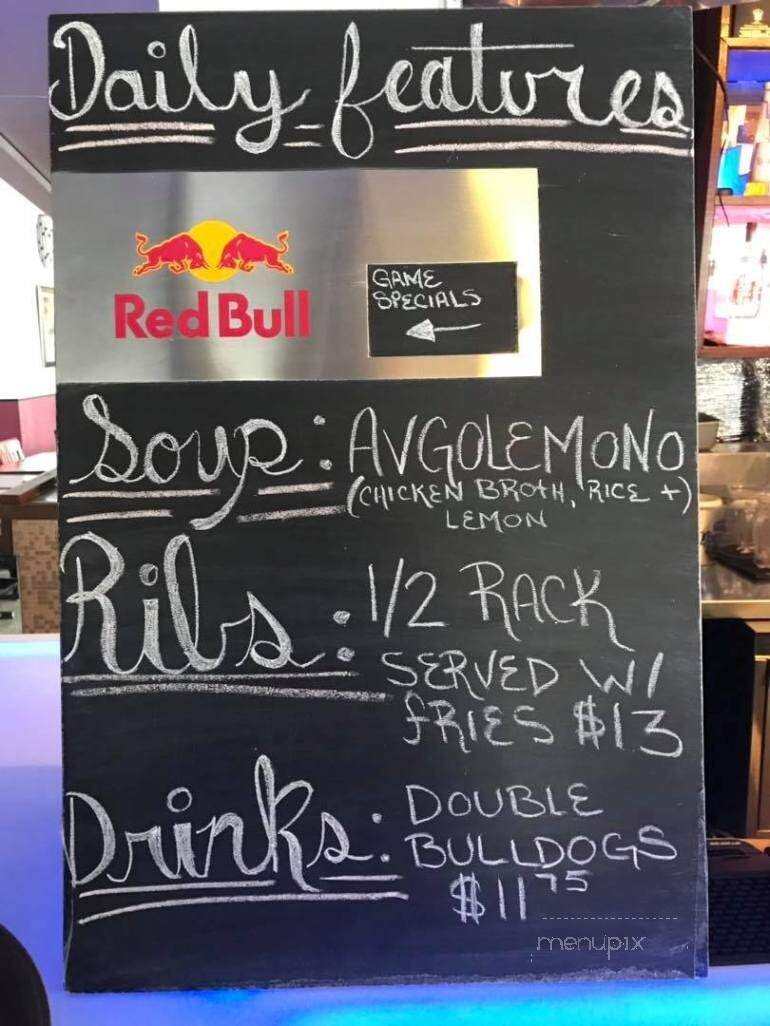 Daily features
Red Bull
GAME
SPECIALS
Soup: AVGOLEMONO
(CHICKEN BROTH, RICE +)
LEMON
Ribs: 1/2 RACK
SERVED W/
FRIES $13
Drinks: DOUBLE
BULLDOGS
$11 75
menupix